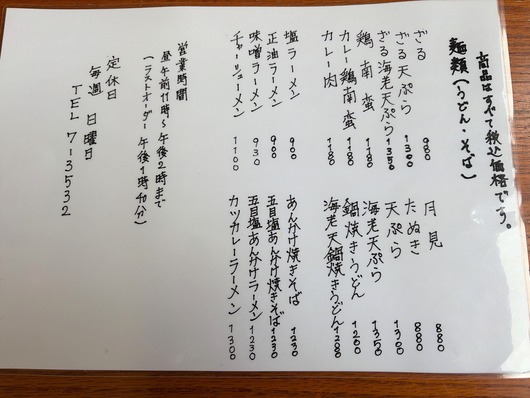 商品はすべて税込価格です。
麺類(うどん・そば)
ざる 980
ざる天ぷら 1300
ざる海老天ぷら 1350
鶏南蛮 1180
カレー鶏南蛮 1180
カレー肉 1180
月見 880
たぬき 880
天ぷら 1300
海老天ぷら 1350
鍋焼きうどん 1200
海老天鍋焼きうどん 1280
塩ラーメン 900
正油ラーメン 900
味噌ラーメン 930
チャーシューメン 1100
あんかけ焼きそば 1230
五目塩あんかけ焼きそば 1230
五目塩あんかけラーメン 1230
カツカレーラーメン 1300
営業時間
昼 午前11時〜午後2時まで
(ラストオーダー 午後1時40分)
定休日
毎週 日曜日
TEL 7-3532